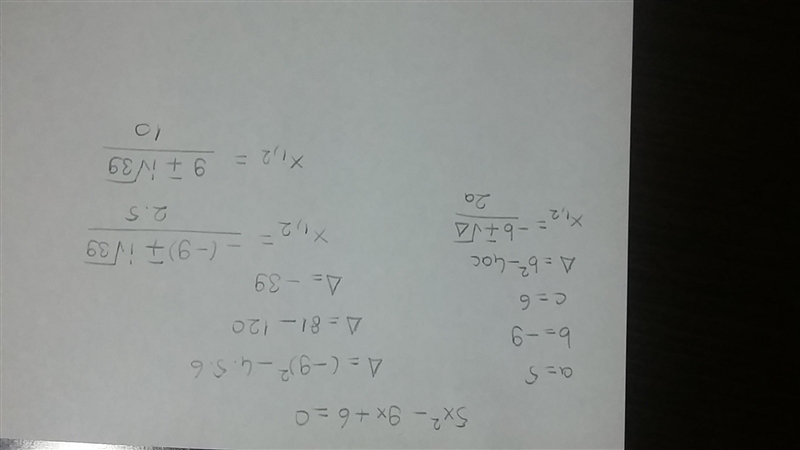 5x² - 9x + 6 = 0
a = 5
b = -9
c = 6
Δ = b² - 4ac
x₁,₂ = (-b ∓ √Δ) / 2a
Δ = (-9)² - 4.5.6
Δ = 81 - 120
Δ = -39
x₁,₂ = (-(-9) ∓ i√39) / 2.5
x₁,₂ = (9 ∓ i√39) / 10